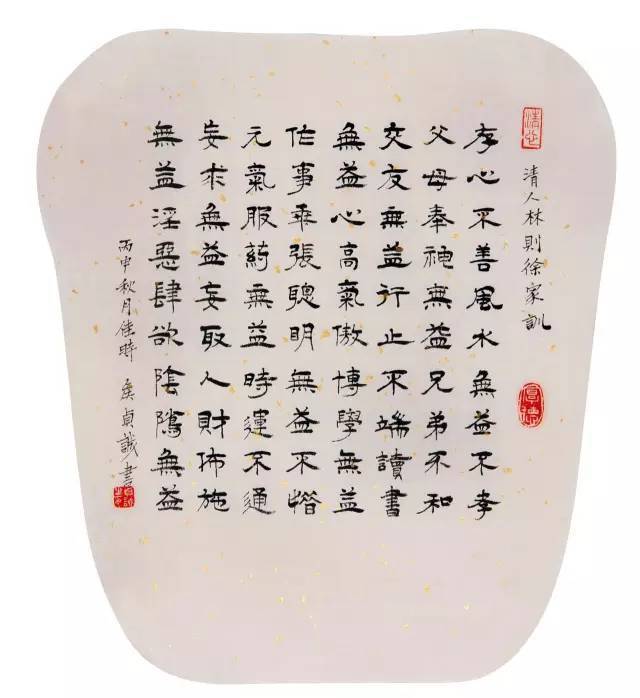 清人林則徐家訓
存心不善風水無益不孝
父母奉神無益兄弟不和
交友無益行止不端讀書
無益心高氣傲博學無益
作事乖張聰明無益不惜
元氣服葯無益時運不通
妄求無益妄取人財佈施
無益淫惡肆欲陰騭無益
丙申秋月佳時 侯貞誠書